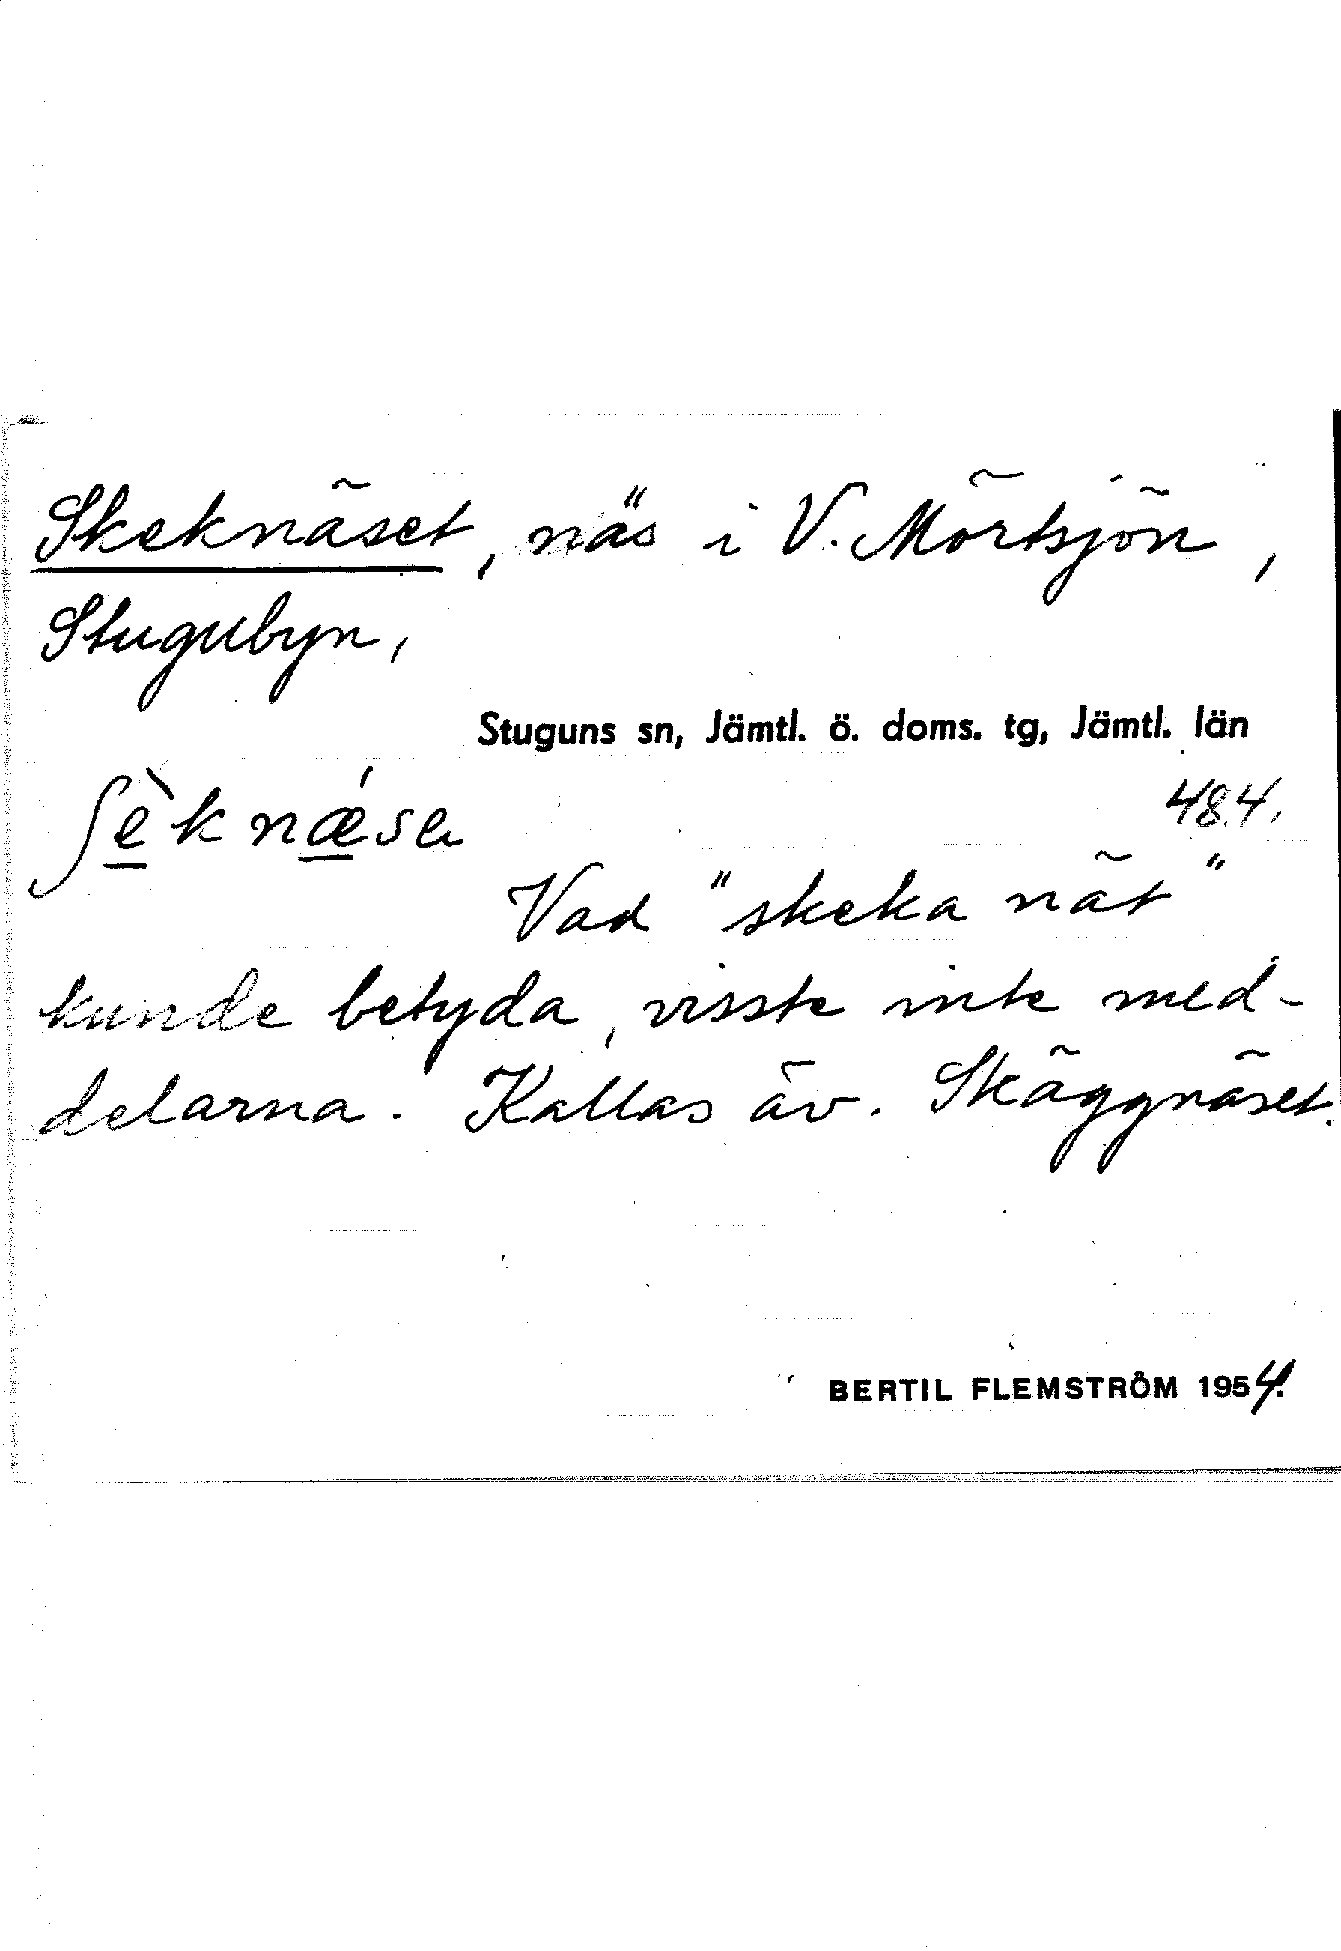 Skeknäset, näs i V. Mörtsjön,
Stugubyn,
Stuguns sn, Jämtl. ö. doms. tg, Jämtl. län
ʃè̲knǽ̲sa
484.
Vad "skeka nät"
kunde betyda, visste inte med-
delarna. Kallas äv. Skäggnäset.
BERTIL FLEMSTRÖM 1954.